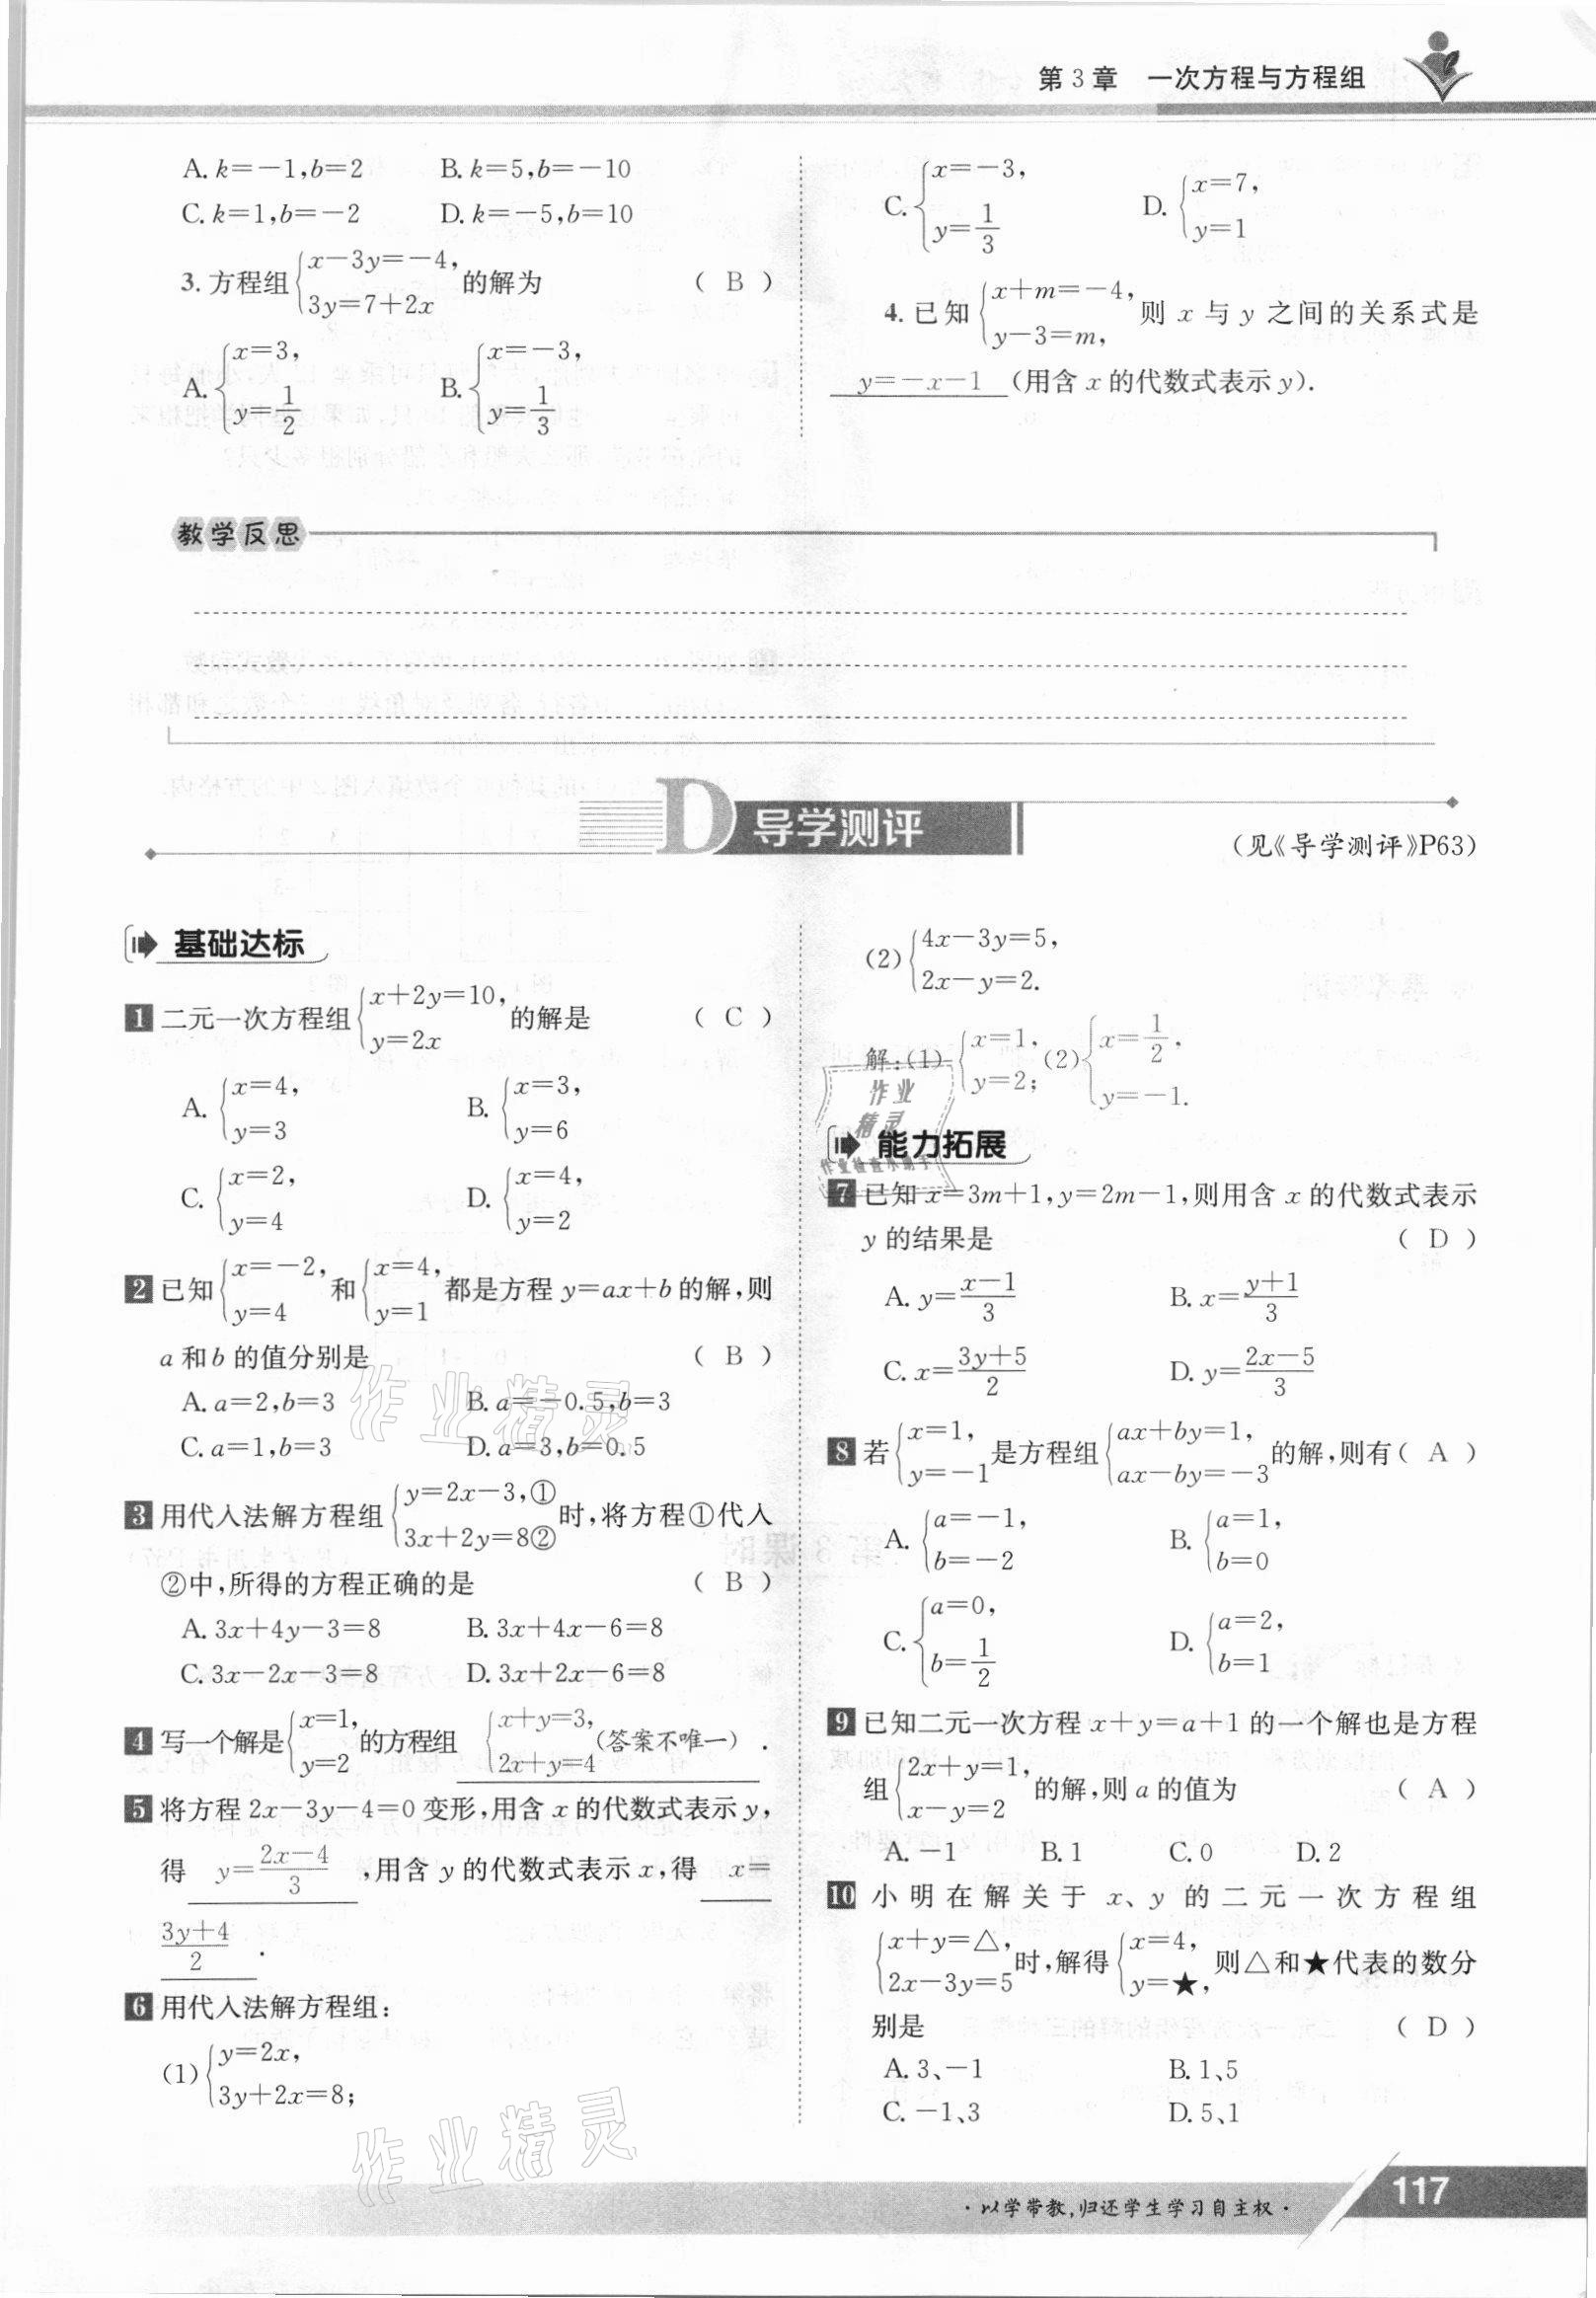 第 3 章　一次方程与方程组
A. k=-1,b=2　B. k=5,b=-10
C. k=1,b=-2　D. k=-5,b=10
3. 方程组{x-3y=-4, 3y=7+2x 的解为　( B )
A. {x=3, y=1/2　B. {x=-3, y=1/3
C. {x=-3, y=1/3　D. {x=7, y=1
4. 已知{x+m=-4, y-3=m, 则 x 与 y 之间的关系式是
y=-x-1 (用含 x 的代数式表示 y).
教学反思
D 导学测评
(见《导学测评》P63)
基础达标
1 二元一次方程组{x+2y=10, y=2x 的解是　( C )
A. {x=4, y=3　B. {x=3, y=6
C. {x=2, y=4　D. {x=4, y=2
2 已知{x=-2, y=4 和{x=4, y=1 都是方程 y=ax+b 的解,则
a 和 b 的值分别是　( B )
A. a=2,b=3　B. a=-0.5,b=3
C. a=1,b=3　D. a=3,b=0.5
3 用代入法解方程组{y=2x-3,① 3x+2y=8② 时,将方程①代入
②中,所得的方程正确的是　( B )
A. 3x+4y-3=8　B. 3x+4x-6=8
C. 3x-2x-3=8　D. 3x+2x-6=8
4 写一个解是{x=1, y=2 的方程组 {x+y=3, 2x+y=4 (答案不唯一) .
5 将方程 2x-3y-4=0 变形,用含 x 的代数式表示 y,
得 y=(2x-4)/3 ,用含 y 的代数式表示 x,得 x=
(3y+4)/2 .
6 用代入法解方程组:
(1){y=2x, 3y+2x=8;
(2){4x-3y=5, 2x-y=2.
解:(1){x=1, y=2; (2){x=1/2, y=-1.
能力拓展
7 已知 x=3m+1,y=2m-1,则用含 x 的代数式表示
y 的结果是　( D )
A. y=(x-1)/3　B. x=(y+1)/3
C. x=(3y+5)/2　D. y=(2x-5)/3
8 若{x=1, y=-1 是方程组{ax+by=1, ax-by=-3 的解,则有( A )
A. {a=-1, b=-2　B. {a=1, b=0
C. {a=0, b=1/2　D. {a=2, b=1
9 已知二元一次方程 x+y=a+1 的一个解也是方程
组{2x+y=1, x-y=2 的解,则 a 的值为　( A )
A. -1　B. 1　C. 0　D. 2
10 小明在解关于 x、y 的二元一次方程组
{x+y=△, 2x-3y=5 时,解得{x=4, y=★, 则△和★代表的数分
别是　( D )
A. 3、-1　B. 1、5
C. -1、3　D. 5、1
作业
精灵
作业检查小助手
作业精灵
作业精灵
·以学带教,归还学生学习自主权·
117